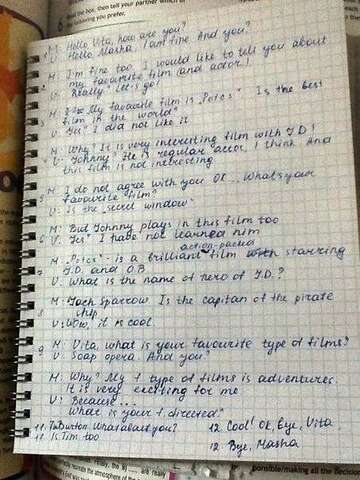 6 Read the box, then tell your partner which of
the following you prefer.
1 M: Hello Vita, how are you?
V: Hello Masha I am fine And you?
2 M: I'm fine too I would like to tell you about
my favourite film and actor!
V: Really? Let's go!
3 M: My favourite film is „Potcs" Is the best
film in the world"
V: Yes? I did not like it
4 M: Why? It is very interesting film with J.D!
V: Johnny? He is regular actor, I think And
this film is not interesting
5 M: I do not agree with you OK... What's your
favourite film?
V: Is the „secret window"
6 M: But Johnny plays in this film too
V: Yes? I have not learned him
action-packed
7 M: „Potcs" - is a brilliant film with starring
J.D. and O.B
V: What is the name of hero of J.D.?
8 M: Jack Sparrow Is the capitan of the pirate
ship
V: Wow, it is cool
9 M: Vita, what is your favourite type of films?
V: Soap opera. And you?
M: Why? My 1 type of films is adventures.
It is very exciting for me
V: Because...
What is your 1 director?
11. T. Burton What about you?
11. Is Tim too
12. Cool! Ok, Bye, Vita
12. Bye, Masha
really
ponsible/making all the decisions